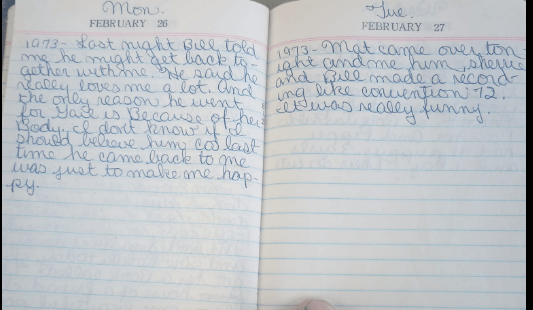 Mon.
FEBRUARY 26
1973- Last night Bill told
me he might get back to-
gether with me. He said he
really loves me a lot. And
the only reason he went
for is Because of her
Body. I dont know if I
should believe him coz last
time he came back to me
was just to make me hap-
py.
Tue.
FEBRUARY 27
1973- Mat came over ton-
ight and me him,
and Bill made a record-
ing like convention 72.
It was really funny.